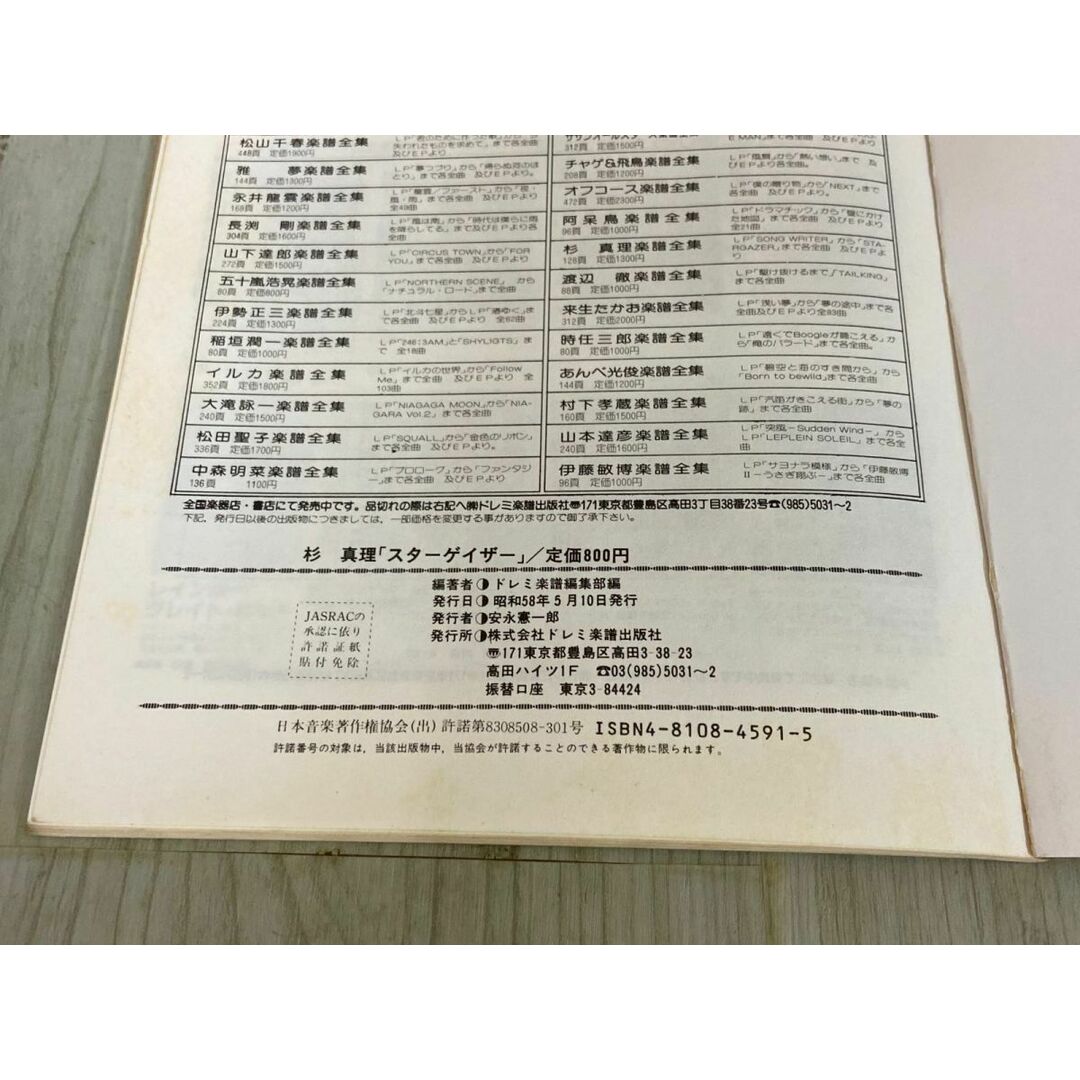 松山千春楽譜全集
448頁 定価1900円
失われたものを求めて」まで各全曲
及びEPより
雅 夢楽譜全集
144頁 定価1300円
LP「夢つづり」から「帰らぬ河のほ
とり」まで各全曲 及びEPより
永井龍雲楽譜全集
168頁 定価1200円
LP「龍雲/ファースト」から「夜・
風・雨」まで各全曲 及びEPより
全49曲
長渕 剛楽譜全集
304頁 定価1600円
LP「風は南」から「時代は僕らに雨
を降らしてる」まで及びEPより各
全曲
山下達郎楽譜全集
272頁 定価1500円
LP「CIRCUS TOWN」から「FOR
YOU」まで各全曲 及びEPより
五十嵐浩晃楽譜全集
80頁 定価800円
LP「NORTHERN SCENE」 から
「ナチュラル・ロード」まで全曲
伊勢正三楽譜全集
224頁 定価1300円
LP「北斗七星」からLP「渚ゆく」ま
で各全曲 及びEPより 全62曲
稲垣潤一楽譜全集
80頁 定価1000円
LP「246:3AM」と「SHYLIGTS」ま
で 全18曲
イルカ楽譜全集
352頁 定価1800円
LP「イルカの世界」から「Follow
Me」まで各全曲 及びEPより 全
103曲
大滝詠一楽譜全集
240頁 定価1500円
LP「NIAGAGA MOON」から「NIA-
GARA Vol.2」まで各全曲
松田聖子楽譜全集
336頁 定価1700円
LP「SQUALL」から「金色のリボン」
まで各全曲 及びEPより
中森明菜楽譜全集
136頁 1100円
LP「プロローグ」から「ファンタジ
ー」まで各全曲 及びEPより
312頁 定価1500円
E MAN」まで各全曲 及びEPより
チャゲ&飛鳥楽譜全集
208頁 定価1200円
LP「風舞」から「熱い想い」まで 及
びEPより各全曲。
オフコース楽譜全集
472頁 定価2300円
LP「僕の贈り物」から「NEXT」まで
各全曲 及びEPより。
阿呆鳥楽譜全集
96頁 定価1000円
LP「ドラマチック」から「壁にかけ
た地図」まで各全曲 及びEPより
全21曲
杉 真理楽譜全集
128頁 定価1300円
LP「SONG WRITER」から「STA-
RGAZER」まで各全曲 及びEPよ
り
渡辺 徹楽譜全集
88頁 定価1000円
LP「駆け抜けるまで」「TALKING」
まで各全曲。
来生たかお楽譜全集
312頁 定価2000円
LP「浅い夢」から「夢の途中」まで各
全曲及びEPより全83曲
時任三郎楽譜全集
80頁 定価1000円
LP「遠くでBoogieが聴こえる」か
ら「俺のバラード」まで各全曲。
あんべ光俊楽譜全集
144頁 定価1200円
LP「碧空と海のすき間から」から
「Born to bewild」まで各全曲
村下孝蔵楽譜全集
160頁 定価1500円
LP「汽笛がきこえる街」から「夢の
跡」まで各全曲
山本達彦楽譜全集
240頁 定価1600円
LP「突風−Sudden Wind−」から
LP「LEPLEIN SOLEIL」まで各全
曲
伊藤敏博楽譜全集
96頁 定価1000円
LP「サヨナラ模様」から「伊藤敏博
II−うさぎ翔ぶ−」まで各全曲
全国楽器店・書店にて発売中です。品切れの際は右記へ㈱ドレミ楽譜出版社〠171東京都豊島区高田3丁目38番23号☎(985)5031〜2
下記，発行日以後の出版物につきましては，一部価格を変更する事がありますので御了承下さい。
杉 真理「スターゲイザー」/定価800円
JASRACの
承認に依り
許諾証紙
貼付免除
編著者◑ドレミ楽譜編集部編
発行日◑昭和58年5月10日発行
発行者◑安永憲一郎
発行所◑株式会社ドレミ楽譜出版社
〠171東京都豊島区高田3-38-23
高田ハイツ1F ☎03(985)5031〜2
振替口座 東京3-84424
日本音楽著作権協会(出)許諾第8308508-301号 ISBN4-8108-4591-5
許諾番号の対象は，当該出版物中，当協会が許諾することのできる著作物に限られます。